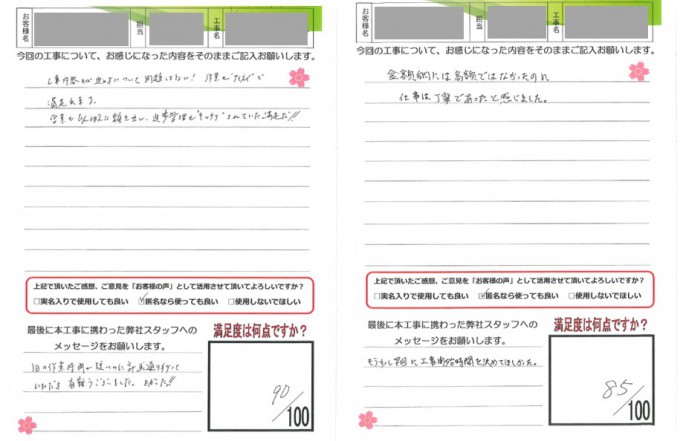 お客様名
担当
工事名
今回の工事について、お感じになった内容をそのままご記入お願いします。
満足します。
上記で頂いたご感想、ご意見を「お客様の声」として活用させて頂いてよろしいですか？
□実名入りで使用しても良い ☑匿名なら使っても良い □使用しないでほしい
最後に本工事に携わった弊社スタッフへの
メッセージをお願いします。
満足度は何点ですか？
90/100
お客様名
担当
工事名
今回の工事について、お感じになった内容をそのままご記入お願いします。
金額的には高額ではなかったのに
仕事は丁寧であったと感じました。
上記で頂いたご感想、ご意見を「お客様の声」として活用させて頂いてよろしいですか？
□実名入りで使用しても良い ☑匿名なら使っても良い □使用しないでほしい
最後に本工事に携わった弊社スタッフへの
メッセージをお願いします。
もう少し早目に工事開始時間を決めてほしかった。
満足度は何点ですか？
85/100